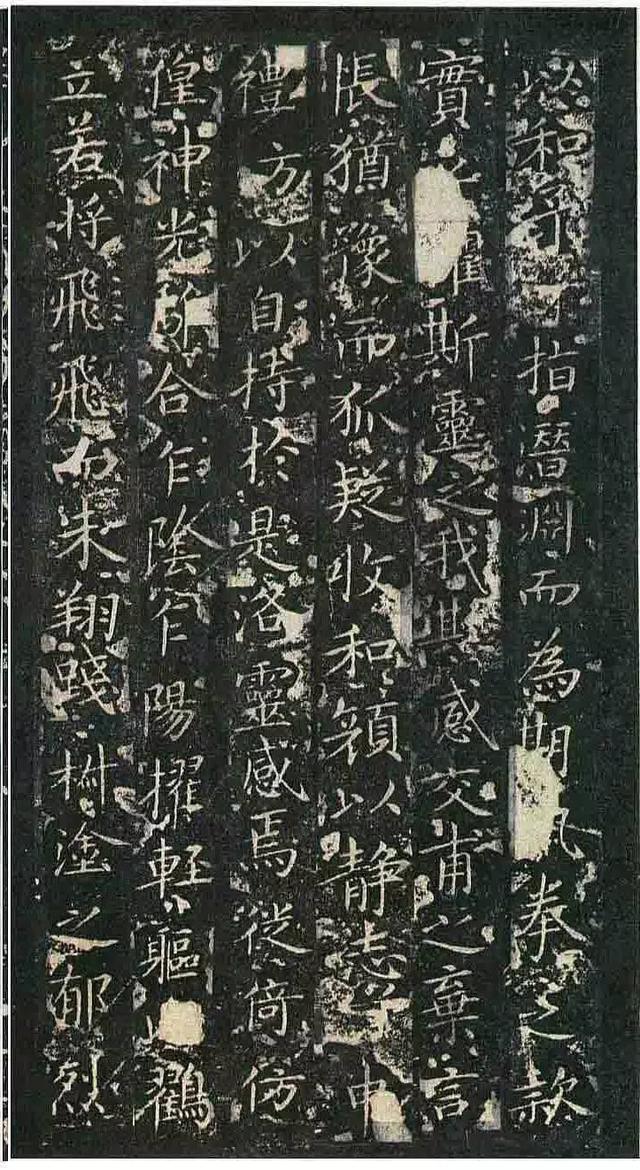 以和予兮指潛淵而為期拳之款
實懼斯靈之我感交甫之棄言
悵猶豫而狐疑收和顏以静志兮申
禮方以自持於是洛靈感焉徙倚仿
偟神光合乍陰乍陽擢軽軀以鸛
立若将飛飛而未翔踐椒塗之郁烈